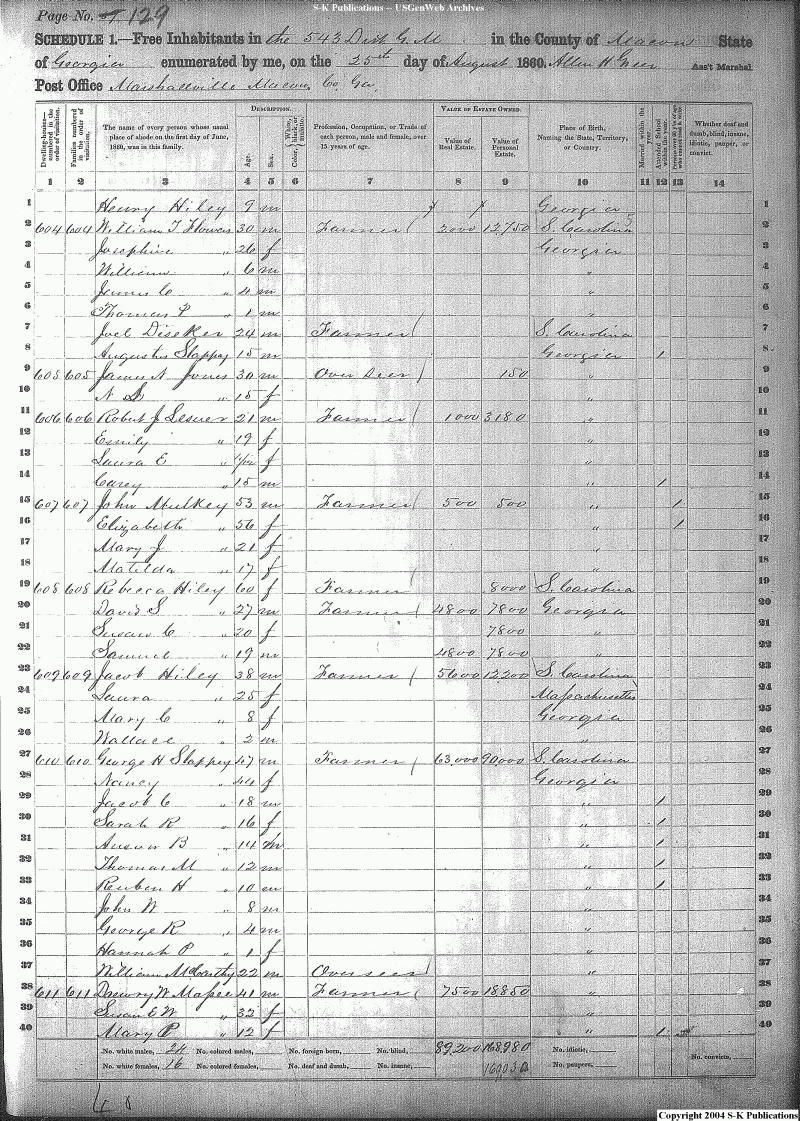 S-K Publications – USGenWeb Archives
Page No. 129
SCHEDULE 1.—Free Inhabitants in the 543 Dist G. M. in the County of Macon State
of Georgia enumerated by me, on the 25th day of August 1860. Allen H Greer Ass't Marshal.
Post Office Marshallville Macon Co Ga.
Dwelling-houses— numbered in the order of visitation.
Families numbered in the order of visitation.
The name of every person whose usual place of abode on the first day of June, 1860, was in this family.
DESCRIPTION.
Age.
Sex.
Color, White, black, or mulatto.
Profession, Occupation, or Trade of each person, male and female, over 15 years of age.
VALUE OF ESTATE OWNED.
Value of Real Estate.
Value of Personal Estate.
Place of Birth, Naming the State, Territory, or Country.
Married within the year.
Attended School within the year.
Whether deaf and dumb, blind, insane, idiotic, pauper, or convict.
1 2 3 4 5 6 7 8 9 10 11 12 13 14
1 Henry Hiley 9 m Georgia 1
2 604 604 William T Flowers 30 m Farmer 2000 12,750 S. Carolina 2
3 Josephine " 26 f Georgia 3
4 William " 6 m " 4
5 James C " 4 m " 5
6 Thomas P " 1 m " 6
7 Joel Diseker 24 m Farmer S. Carolina 7
8 Augustus Slappey 15 m Georgia 1 8
9 605 605 James N Jones 30 m Over Seer 150 " 9
10 " 15 f " 10
11 606 606 Robert J Lesuer 21 m Farmer 1000 3180 " 11
12 Emily " 19 f " 12
13 Laura E " f " 13
14 Carey " 15 m " 1 14
15 607 607 John Mulkey 53 m Farmer 500 500 " 1 15
16 Elizabeth " 56 f " 1 16
17 Mary J " 21 f " 17
18 Matilda " 17 f " 18
19 608 608 Rebecca Hiley 60 f Farmer 8000 S. Carolina 19
20 David S " 27 m Farmer 4800 7800 Georgia 20
21 Susan C " 20 f 7800 " 21
22 Samuel " 19 m 4800 7800 " 22
23 609 609 Jacob Hiley 38 m Farmer 5600 12200 S. Carolina 23
24 Laura " 25 f Massachusetts 24
25 Mary C " 8 f Georgia 25
26 Wallace " 2 m " 26
27 610 610 George H Slappey 47 m Farmer 63,000 90,000 S. Carolina 27
28 Nancy " 44 f Georgia 28
29 Jacob C " 18 m " 1 29
30 Sarah R " 16 f " 1 30
31 B " 14 m " 1 31
32 Thomas M " 12 m " 1 32
33 Reuben H " 10 m " 1 33
34 John W " 8 m " 34
35 George R " 4 m " 35
36 Hannah P " 1 f " 36
37 William McCarthy 22 m Overseer " 37
38 611 611 Drewry W Massee 41 m Farmer 7500 18850 " 38
39 Susan E W " 32 f " 39
40 Mary P " 12 f " 1 40
No. white males, 24 No. colored males, No. foreign born, No. blind, 89,200 168,980 No. idiotic, No. convicts,
No. white females, 16 No. colored females, No. deaf and dumb, No. insane, No. paupers,
Copyright 2004 S-K Publications